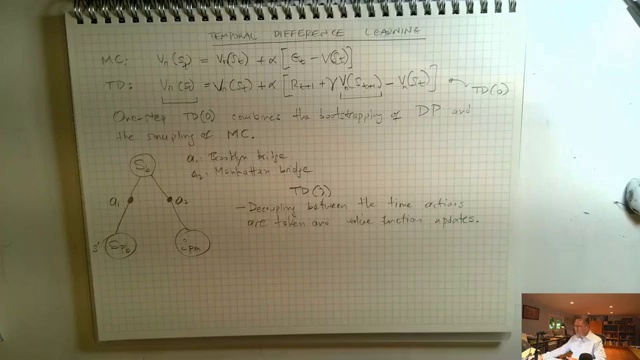 TEMPORAL DIFFERENCE LEARNING
MC: Vπ(St) = Vπ(St) + α [Gt − V(St)]
TD: Vπ(St) = Vπ(St) + α [Rt+1 + γ Vπ(St+1) − Vπ(St)] TD(0)
One-step TD(0) combines the bootstrapping of DP and
the sampling of MC.
a1: Brooklyn bridge
a2: Manhattan bridge
a1
a2
TD(λ)
- Decoupling between the time actions
are taken and value function updates.